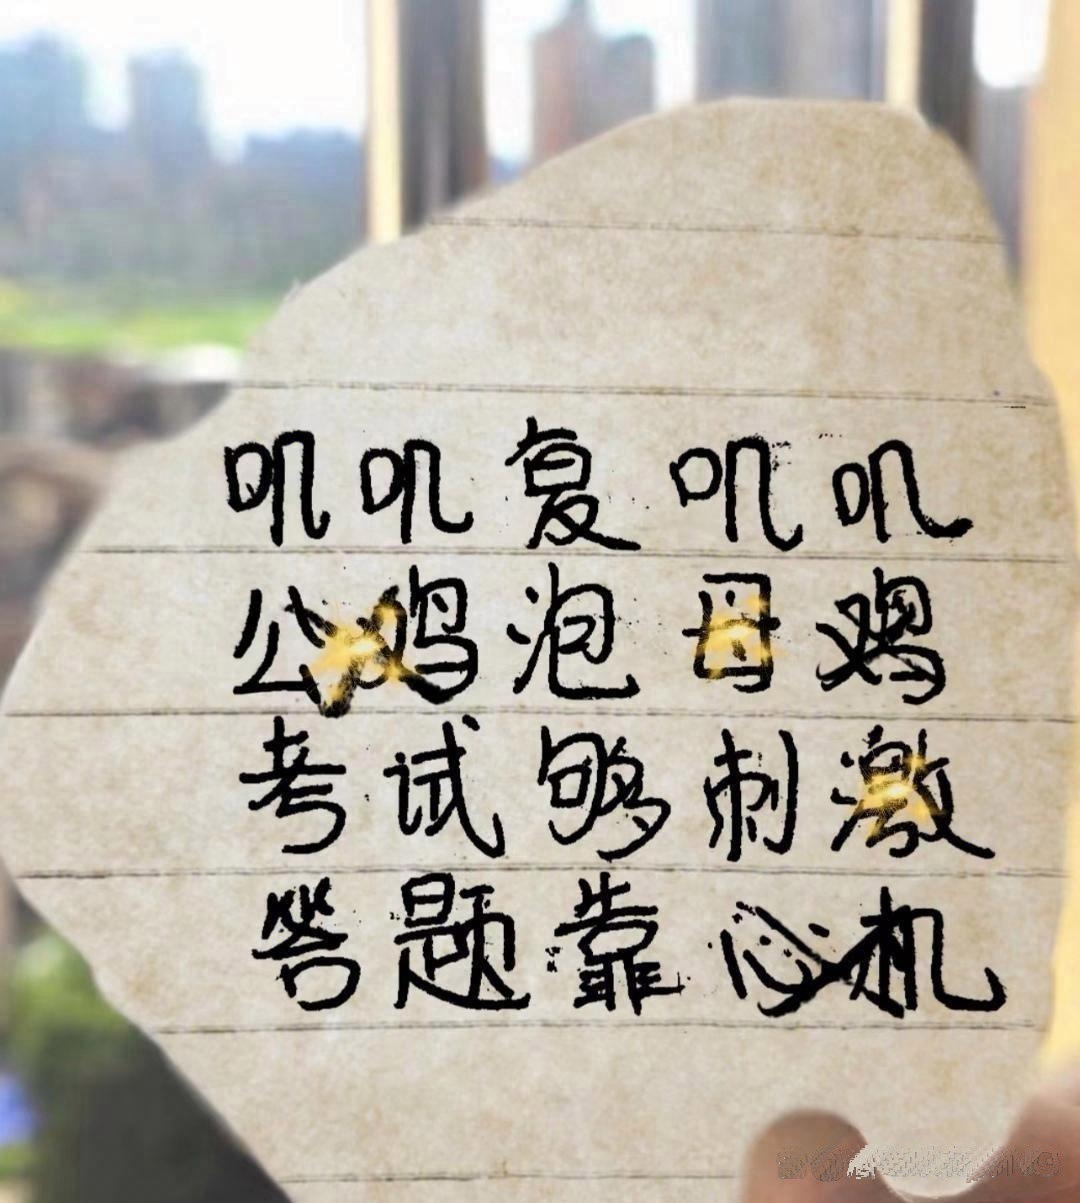 叽叽复叽叽
公鸡泡母鸡
考试够刺激
答题靠心机